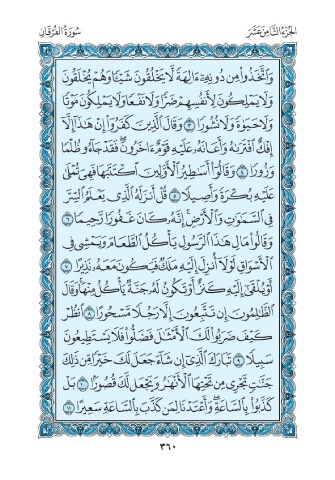 الجزء الثامن عشر
سورة الفرقان
وَٱتَّخَذُوا۟ مِن دُونِهِۦٓ ءَالِهَةً لَّا يَخْلُقُونَ شَيْـًٔا وَهُمْ يُخْلَقُونَ
وَلَا يَمْلِكُونَ لِأَنفُسِهِمْ ضَرًّا وَلَا نَفْعًا وَلَا يَمْلِكُونَ مَوْتًا
وَلَا حَيَوٰةً وَلَا نُشُورًا ٣ وَقَالَ ٱلَّذِينَ كَفَرُوٓا۟ إِنْ هَـٰذَآ إِلَّآ
إِفْكٌ ٱفْتَرَىٰهُ وَأَعَانَهُۥ عَلَيْهِ قَوْمٌ ءَاخَرُونَ فَقَدْ جَآءُو ظُلْمًا
وَزُورًا ٤ وَقَالُوٓا۟ أَسَـٰطِيرُ ٱلْأَوَّلِينَ ٱكْتَتَبَهَا فَهِىَ تُمْلَىٰ
عَلَيْهِ بُكْرَةً وَأَصِيلًا ٥ قُلْ أَنزَلَهُ ٱلَّذِى يَعْلَمُ ٱلسِّرَّ
فِى ٱلسَّمَـٰوَٰتِ وَٱلْأَرْضِ إِنَّهُۥ كَانَ غَفُورًا رَّحِيمًا ٦
وَقَالُوا۟ مَالِ هَـٰذَا ٱلرَّسُولِ يَأْكُلُ ٱلطَّعَامَ وَيَمْشِى فِى
ٱلْأَسْوَاقِ لَوْلَآ أُنزِلَ إِلَيْهِ مَلَكٌ فَيَكُونَ مَعَهُۥ نَذِيرًا ٧
أَوْ يُلْقَىٰٓ إِلَيْهِ كَنزٌ أَوْ تَكُونُ لَهُۥ جَنَّةٌ يَأْكُلُ مِنْهَا وَقَالَ
ٱلظَّـٰلِمُونَ إِن تَتَّبِعُونَ إِلَّا رَجُلًا مَّسْحُورًا ٨ ٱنظُرْ
كَيْفَ ضَرَبُوا۟ لَكَ ٱلْأَمْثَـٰلَ فَضَلُّوا۟ فَلَا يَسْتَطِيعُونَ
سَبِيلًا ٩ تَبَارَكَ ٱلَّذِىٓ إِن شَآءَ جَعَلَ لَكَ خَيْرًا مِّن ذَٰلِكَ
جَنَّـٰتٍ تَجْرِى مِن تَحْتِهَا ٱلْأَنْهَـٰرُ وَيَجْعَل لَّكَ قُصُورًۢا ١٠ بَلْ
كَذَّبُوا۟ بِٱلسَّاعَةِ وَأَعْتَدْنَا لِمَن كَذَّبَ بِٱلسَّاعَةِ سَعِيرًا ١١
٣٦٠